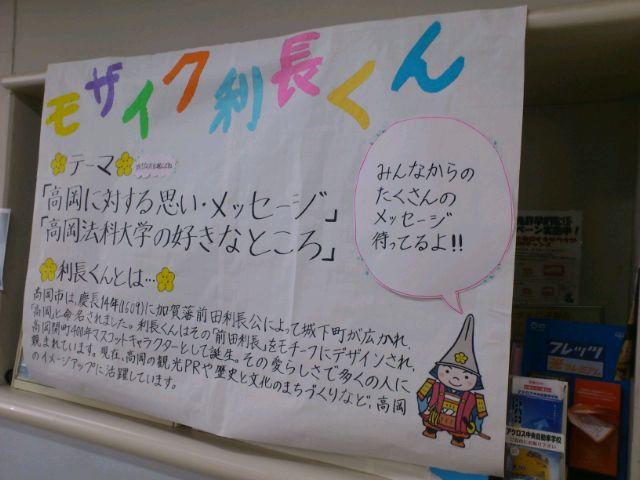 モザイク利長くん
テーマ
「高岡に対する思い・メッセージ」
「高岡法科大学の好きなところ」
利長くんとは…
高岡市は、慶長14年(1609)に加賀藩前田利長公によって城下町が広かれ、
「高岡」と命名されました。利長くんはその「前田利長」をモチーフにデザインされ、
高岡開町400年マスコットキャラクターとして誕生。その愛らしさで多くの人に
親まれています。現在、高岡の観光PRや歴史と文化のまちづくりなど、高岡
のイメージアップに活躍しています。
みんなからの
たくさんの
メッセージ
待ってるよ!!
フレッツ
光プレミアム
アクロス中央自動車学校